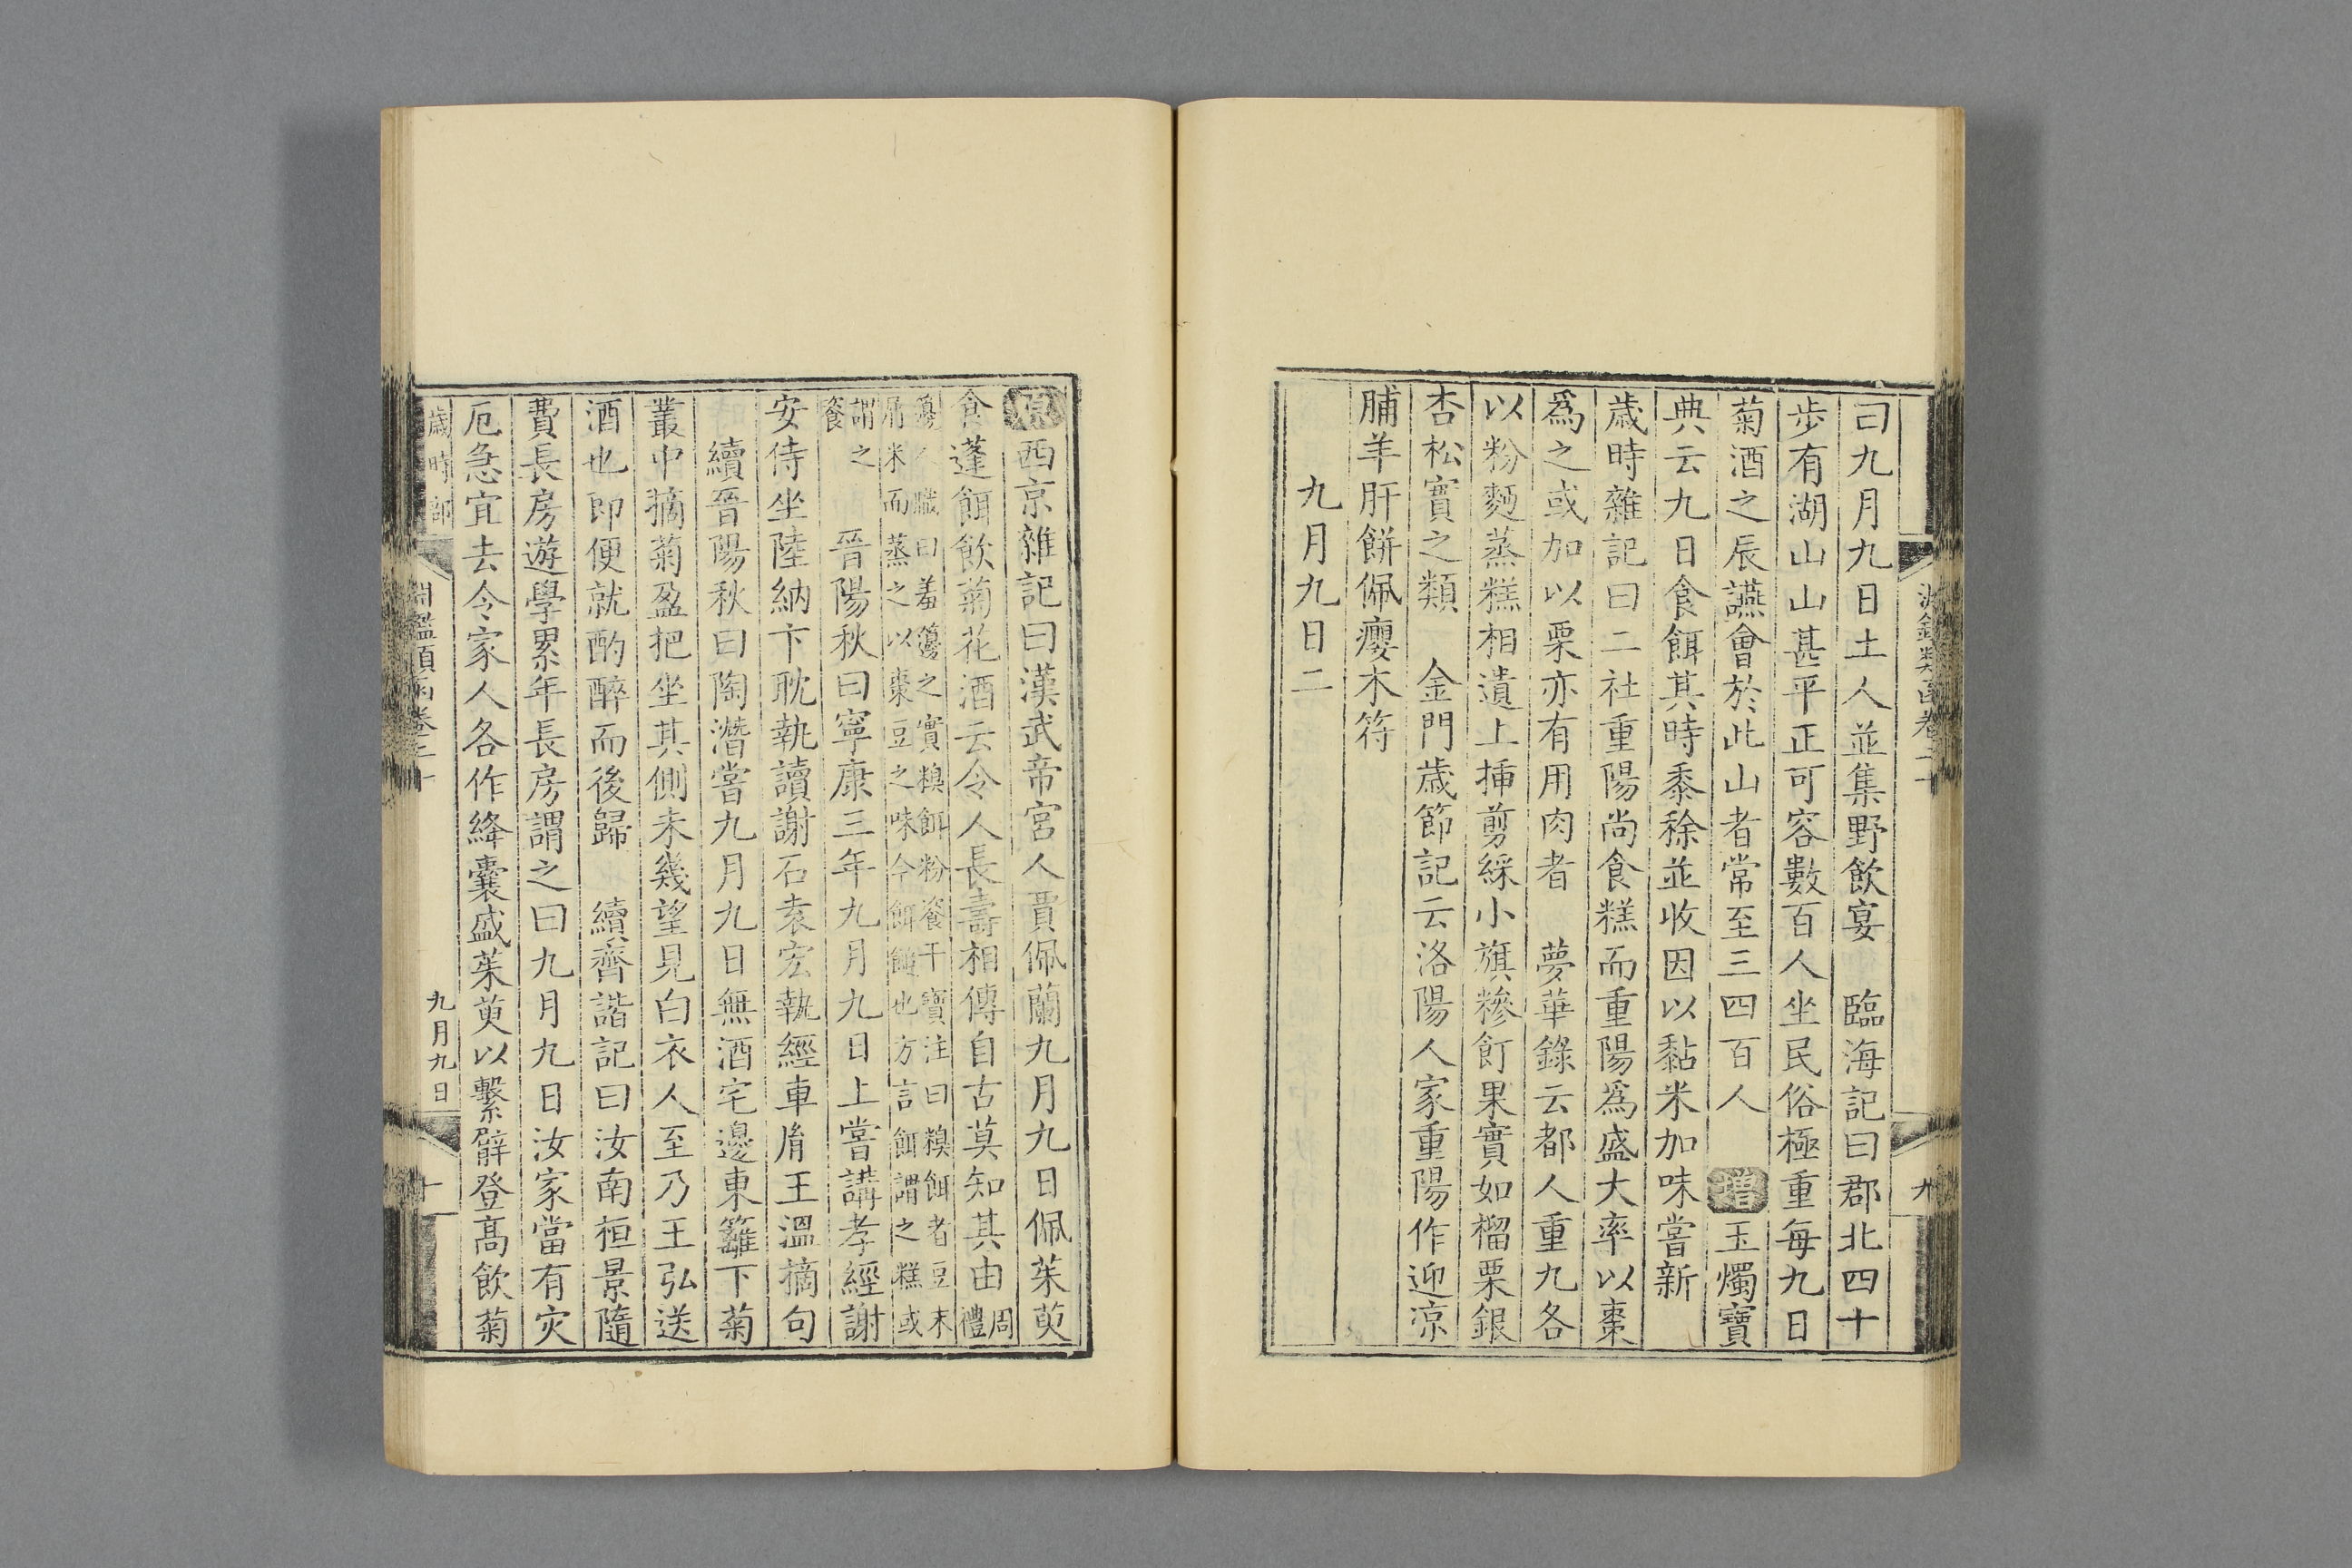 曰九月九日土人並集野飲宴　臨海記曰郡北四十
步有湖山山甚平正可容數百人坐民俗極重每九日
菊酒之辰讌會於此山者常至三四百人　增玉燭寶
典云九日食餌其時黍稌並收因以黏米加味嘗新
歳時雜記曰二社重陽尚食糕而重陽爲盛大率以棗
爲之或加以栗亦有用肉者　夢華錄云都人重九各
以粉麪蒸糕相遺上揷剪綵小旗糝飣果實如榴栗銀
杏松實之類　金門歳節記云洛陽人家重陽作迎涼
脯羊肝餅佩癭木符
九月九日二
淵鑑類函卷二十
九
原西京雜記曰漢武帝宮人賈佩蘭九月九日佩茱萸
食蓬餌飲菊花酒云令人長壽相傳自古莫知其由周禮
籩人職曰羞籩之實糗餌粉餈干寶注曰糗餌者豆末
屑米而蒸之以棗豆之味今餌餻也方言餌謂之糕或
謂之餈　晉陽秋曰寧康三年九月九日上嘗講孝經謝
安侍坐陸納卞耽執讀謝石袁宏執經車胤王溫摘句
續晉陽秋曰陶潛嘗九月九日無酒宅邊東籬下菊
叢中摘菊盈把坐其側未幾望見白衣人至乃王弘送
酒也即便就酌醉而後歸　續齊諧記曰汝南桓景隨
費長房遊學累年長房謂之曰九月九日汝家當有灾
厄急宜去令家人各作絳囊盛茱萸以繫臂登高飲菊
歲時部
淵鑑類函卷二十
九月九日
十